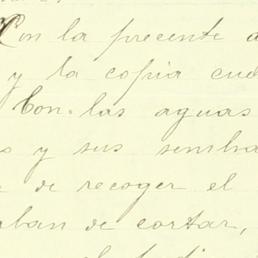 Con la precente a
y la copia cua
Con las aguas
s y sus sembra
de recoger el
aban de cortar,